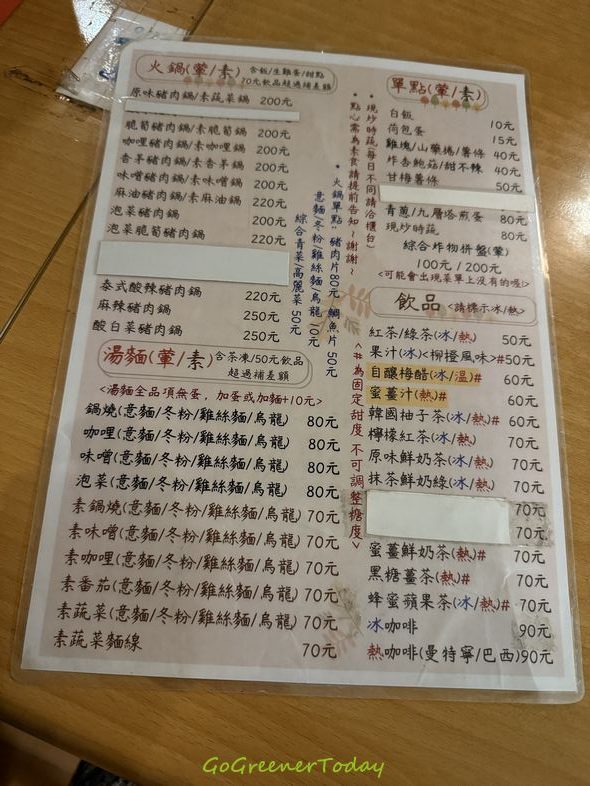 火鍋(葷/素)
含飯/生雞蛋/甜點
70元飲品超過補差額
原味豬肉鍋/素蔬菜鍋 200元
脆筍豬肉鍋/素脆筍鍋 200元
咖哩豬肉鍋/素咖哩鍋 200元
香茅豬肉鍋/素香茅鍋 200元
味噌豬肉鍋/素味噌鍋 200元
麻油豬肉鍋/素麻油鍋 220元
泡菜豬肉鍋 200元
泡菜脆筍豬肉鍋 220元
泰式酸辣豬肉鍋 220元
麻辣豬肉鍋 250元
酸白菜豬肉鍋 250元
•火鍋單點:豬肉片80元 鯛魚片 50元
意麵/冬粉/雞絲麵/烏龍 10元
綜合青菜高麗菜 50元
湯麵(葷/素)
含茶凍/50元飲品
超過補差額
<湯麵全品項無蛋,加蛋或加麵+10元>
鍋燒(意麵/冬粉/雞絲麵/烏龍) 80元
咖哩(意麵/冬粉/雞絲麵/烏龍) 80元
味噌(意麵/冬粉/雞絲麵/烏龍) 80元
泡菜(意麵/冬粉/雞絲麵/烏龍) 80元
素鍋燒(意麵/冬粉/雞絲麵/烏龍) 70元
素味噌(意麵/冬粉/雞絲麵/烏龍) 70元
素咖哩(意麵/冬粉/雞絲麵/烏龍) 70元
素番茄(意麵/冬粉/雞絲麵/烏龍) 70元
素蔬菜(意麵/冬粉/雞絲麵/烏龍) 70元
素蔬菜麵線 70元
單點(葷/素)
•現炒時蔬(每日不同請洽櫃台)
•點心需為素食請提前告知~謝謝~
白飯 10元
荷包蛋 15元
雞塊/山藥捲/薯條 40元
炸杏鮑菇/甜不辣 40元
甘梅薯條 50元
青蔥/九層塔煎蛋 80元
現炒時蔬 80元
綜合炸物拼盤(葷)
100元 / 200元
<可能會出現菜單上沒有的喔!>
飲品 <請標示冰/熱>
<#為固定甜度 不可調整糖度>
紅茶/綠茶(冰/熱) 50元
果汁(冰)<柳橙風味>#50元
自釀梅醋(冰/溫)# 60元
蜜薑汁(熱)# 60元
韓國柚子茶(冰/熱)# 60元
檸檬紅茶(冰/熱) 70元
原味鮮奶茶(冰/熱) 70元
抹茶鮮奶綠(冰/熱) 70元
70元
70元
蜜薑鮮奶茶(熱)# 70元
黑糖薑茶(熱)# 70元
蜂蜜蘋果茶(冰/熱)# 70元
冰咖啡 90元
熱咖啡(曼特寧/巴西)90元
GoGreenerToday